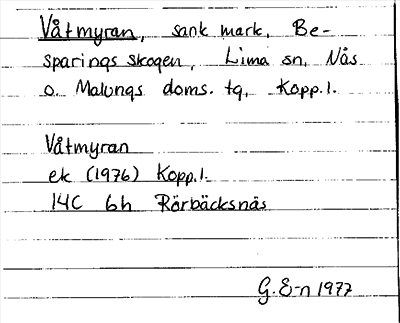 Våtmyran, sank mark, Be-
sparingsskogen, Lima sn, Nås
o. Malungs doms. tg, Kopp.l.
Våtmyran
ek (1976) Kopp.l.
14C 6h Rörbäcksnäs
G. E-n 1977